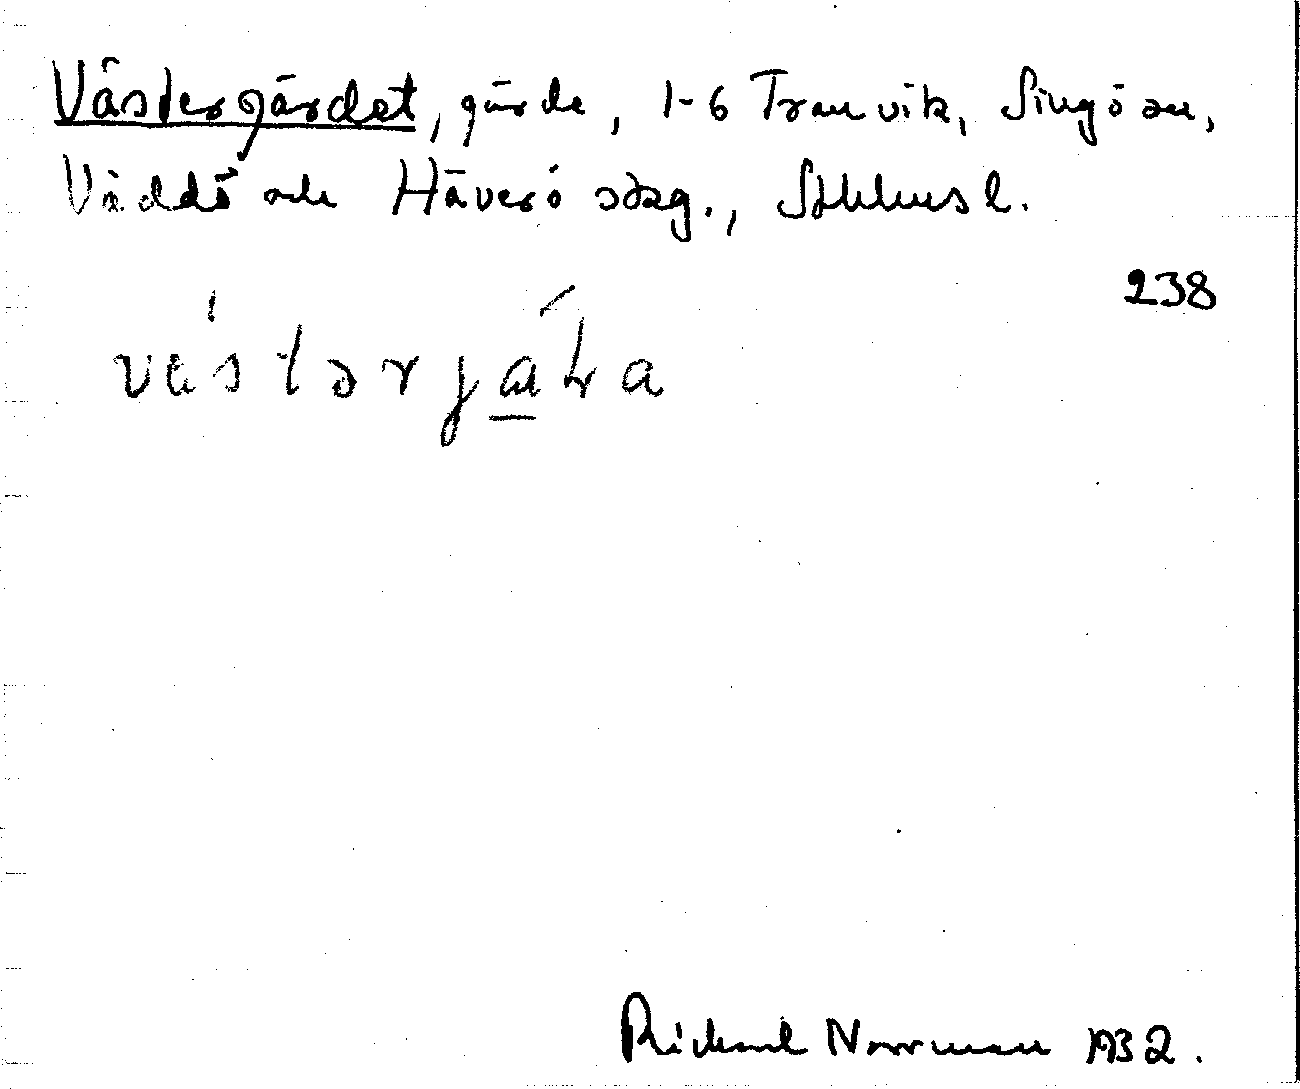 Västergärdet, gärde, 1-6 Tranvik, Singö sn,
Väddö och Häverö skg., Sthlms l.
238
Richard Norrman 1932.